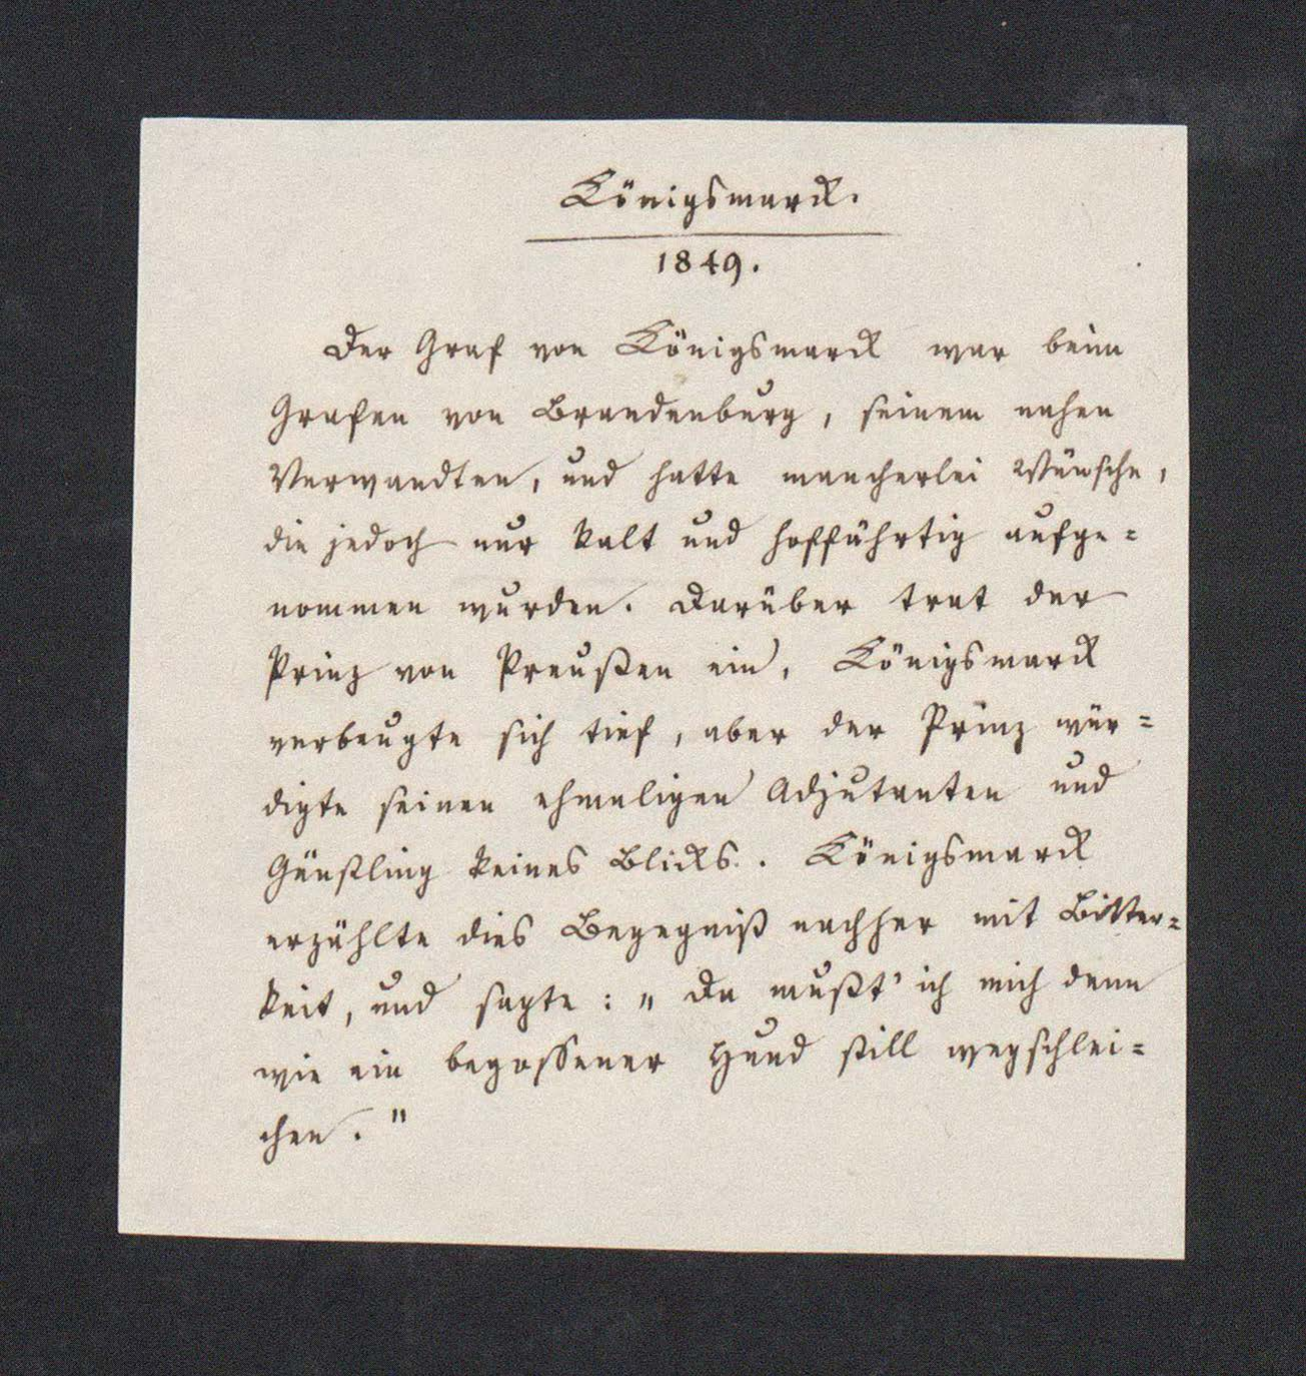 Königsmarck.
1849.
Der Graf von Königsmarck war beim
Grafen von Brandenburg, seinem nahen
Verwandten, und hatte mancherlei Wünsche,
die jedoch nur kalt und hoffährtig aufge=
nommen wurden. Darüber trat der
Prinz von Preußen ein, Königsmarck
verbeugte sich tief, aber der Prinz wür=
digte seinen ehmaligen Adjutanten und
Günstling keines Blicks. Königsmarck
erzählte dies Begegniß nachher mit Bitter=
keit, und sagte: „Da mußt' ich mich denn
wie ein begossener Hund still wegschlei=
chen."